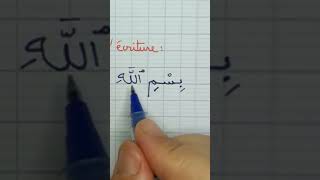 l'écriture:
بِسْمِ ٱللَّهِ